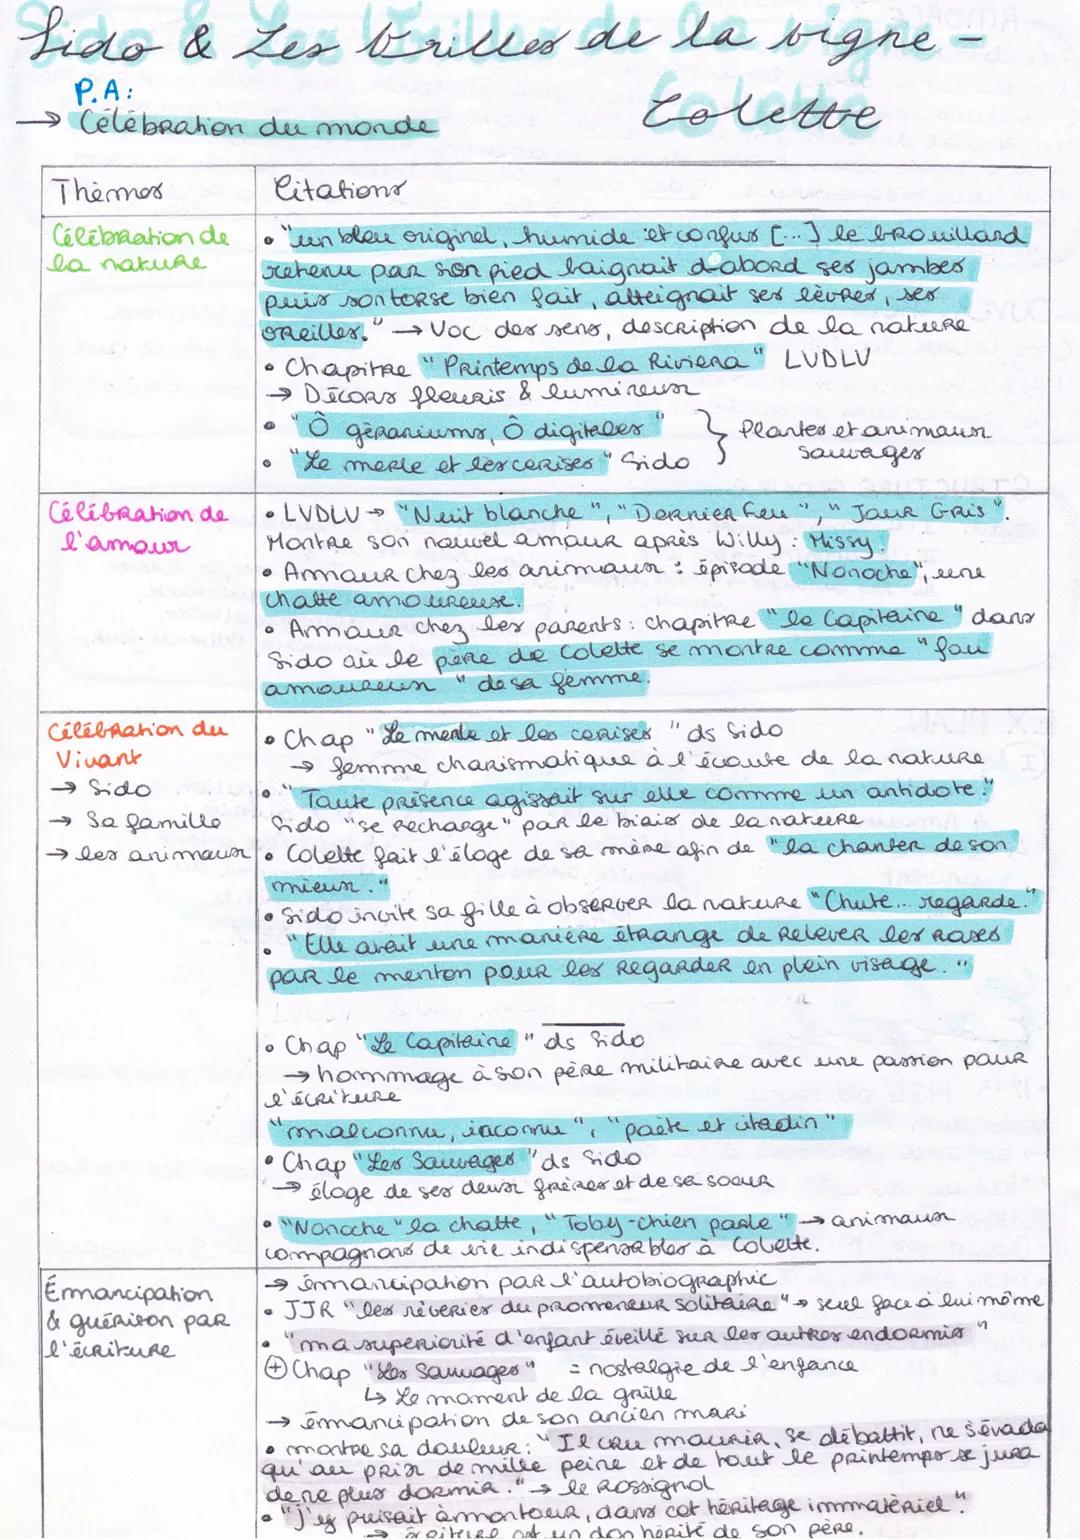 Sido & Les Vrilles de la vigne -
Colette
P.A:
→ Célébration du monde
Thèmes
Citations
Célébration de
la nature
• "un bleu originel, humide et confus [...] le brouillard
retenu par son pied baignait d'abord ses jambes
puis son torse bien fait, atteignait ses lèvres, ses
oreilles." → Voc des sens, description de la nature
• Chapitre "Printemps de la Riviera" LVDLV
→ Décors fleuris & lumineux
• "Ô géraniums, Ô digitales"
• "Le merle et les cerises" Sido
} Plantes et animaux
sauvages
Célébration de
l'amour
• LVDLV → "Nuit blanche", "Dernier Feu", "Jour Gris".
Montre son nouvel amour après Willy : Missy.
• Amour chez les animaux : épisode "Nonoche", une
chatte amoureuse.
• Amour chez les parents : chapitre "le Capitaine" dans
Sido où le père de Colette se montre comme "fou
amoureux" de sa femme.
Célébration du
Vivant
→ Sido
→ Sa famille
→ les animaux
• Chap "Le merle et les cerises" ds Sido
→ femme charismatique à l'écoute de la nature
• "Toute présence agissait sur elle comme un antidote."
Sido "se recharge" par le biais de la nature
• Colette fait l'éloge de sa mère afin de "la chanter de son
mieux."
• Sido invite sa fille à observer la nature "Chute... regarde."
• "Elle avait une manière étrange de relever les roses
par le menton pour les regarder en plein visage."
• Chap "Le Capitaine" ds Sido
→ hommage à son père militaire avec une passion pour
l'écriture
"malconnu, inconnu", "poète et citadin"
• Chap "Les Sauvages" ds Sido
→ éloge de ses deux frères et de sa soeur
• "Nonoche" la chatte, "Toby-chien parle" → animaux
compagnons de vie indispensables à Colette.
Émancipation
& guérison par
l'écriture
→ émancipation par l'autobiographie
• JJR "les rêveries du promeneur solitaire" → seul face à lui même
• "ma supériorité d'enfant éveillé sur les autres endormis"
⊕ Chap "Les Sauvages" = nostalgie de l'enfance
↳ Le moment de la grille
→ émancipation de son ancien mari
• montre sa douleur : "Il cru mourir, se débattit, ne s'évada
qu'au prix de mille peine et de tout le printemps se jura
de ne plus dormir." → le Rossignol
• "j'y puisait à mon tour, dans cet héritage immatériel".
→ écriture est un don hérité de son père.